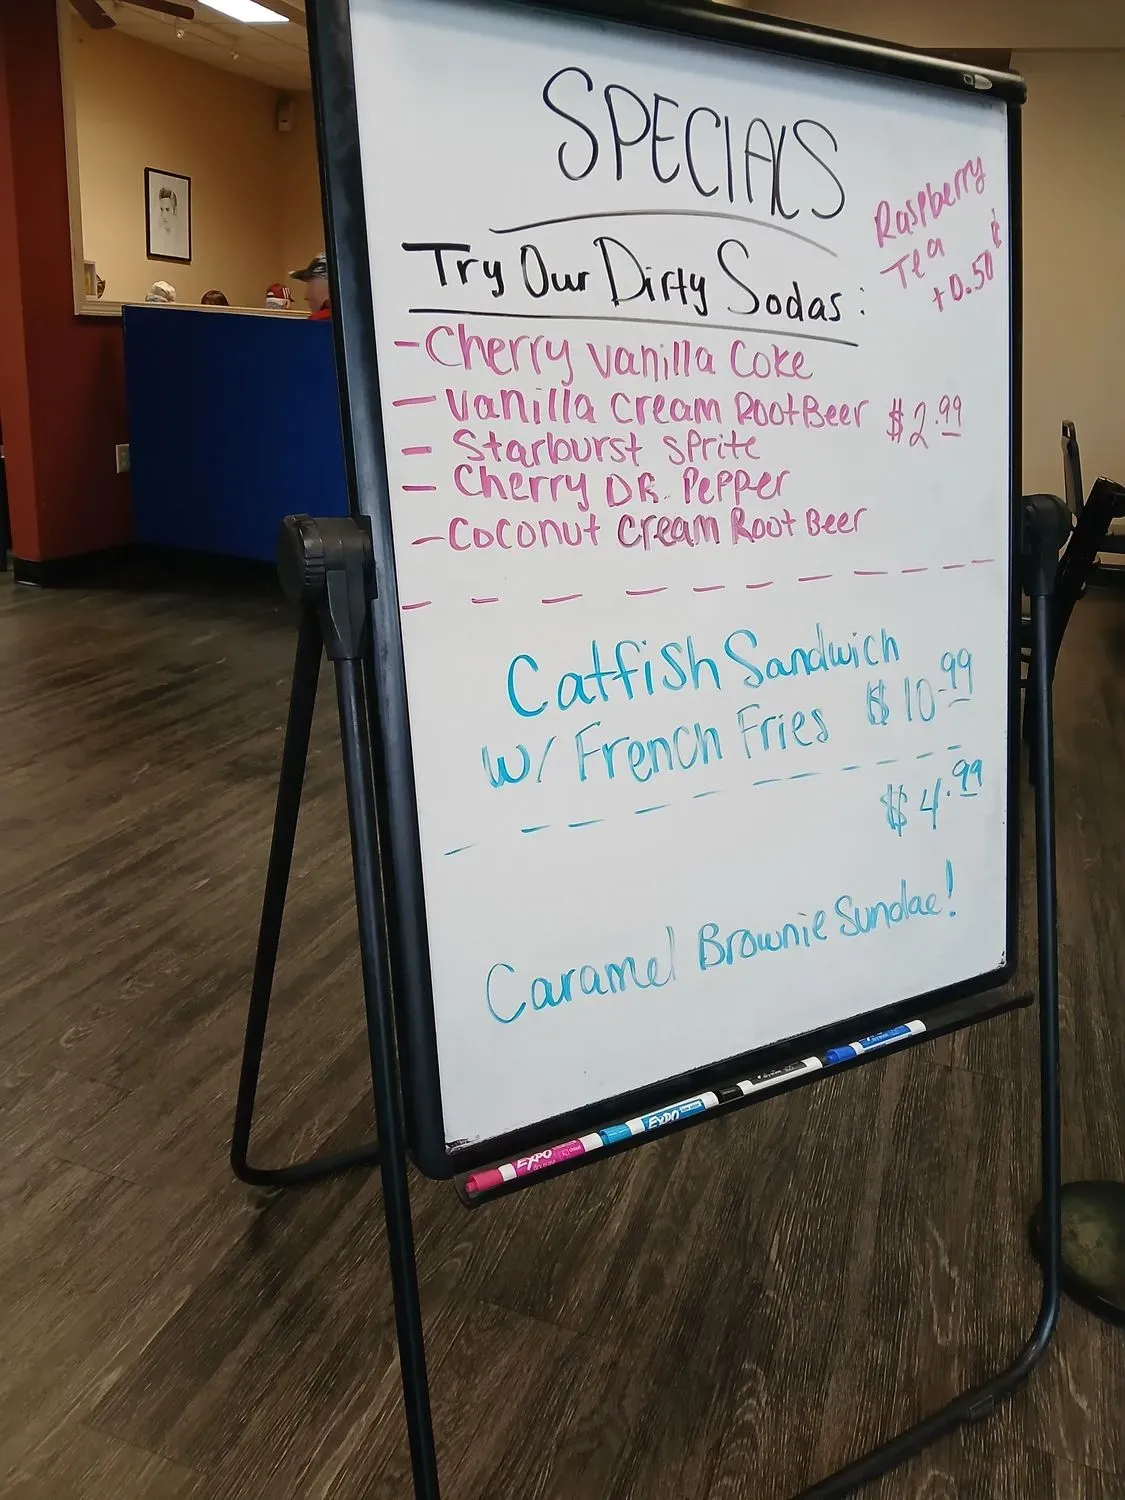 SPECIALS
Raspberry
Tea
+0.50¢
Try Our Dirty Sodas:
- Cherry Vanilla Coke
- Vanilla Cream Root Beer $2.99
- Starburst Sprite
- Cherry DR. Pepper
- Coconut Cream Root Beer
Catfish Sandwich
w/ French Fries $10.99
$4.99
Caramel Brownie Sundae!
EXPO
EXPO